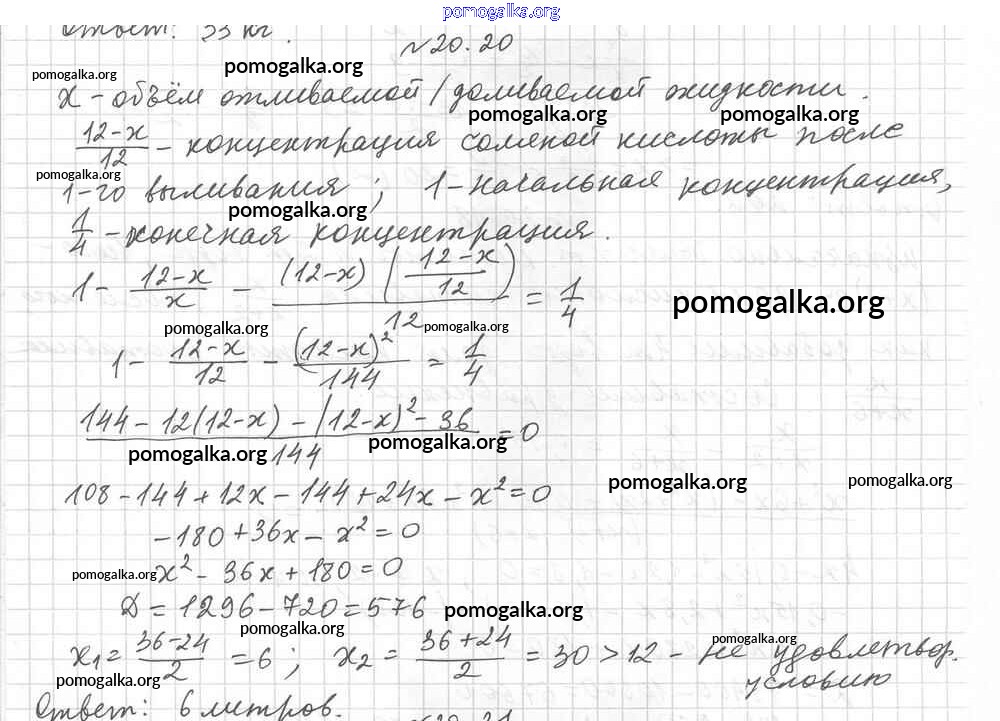 pomogalka.org
Ответ: 33 кг.
№20.20
pomogalka.org pomogalka.org
x - объём отливаемой/доливаемой жидкости.
pomogalka.org pomogalka.org
(12-x)/12 - концентрация соляной кислоты после
pomogalka.org
1-го выливания; 1-начальная концентрация,
pomogalka.org
1/4 - конечная концентрация.
1 - (12-x)/x - ((12-x)((12-x)/12))/12 = 1/4
pomogalka.org
pomogalka.org pomogalka.org
1 - (12-x)/12 - (12-x)²/144 = 1/4
(144-12(12-x)-(12-x)²-36)/144 = 0
pomogalka.org pomogalka.org
pomogalka.org pomogalka.org
108-144+12x-144+24x-x²=0
-180+36x-x²=0
pomogalka.org
x²-36x+180=0
D=1296-720=576
pomogalka.org
pomogalka.org pomogalka.org
x₁=(36-24)/2=6; x₂=(36+24)/2=30>12 - не удовлетвор.
условию
pomogalka.org
Ответ: 6 литров.
№20.21